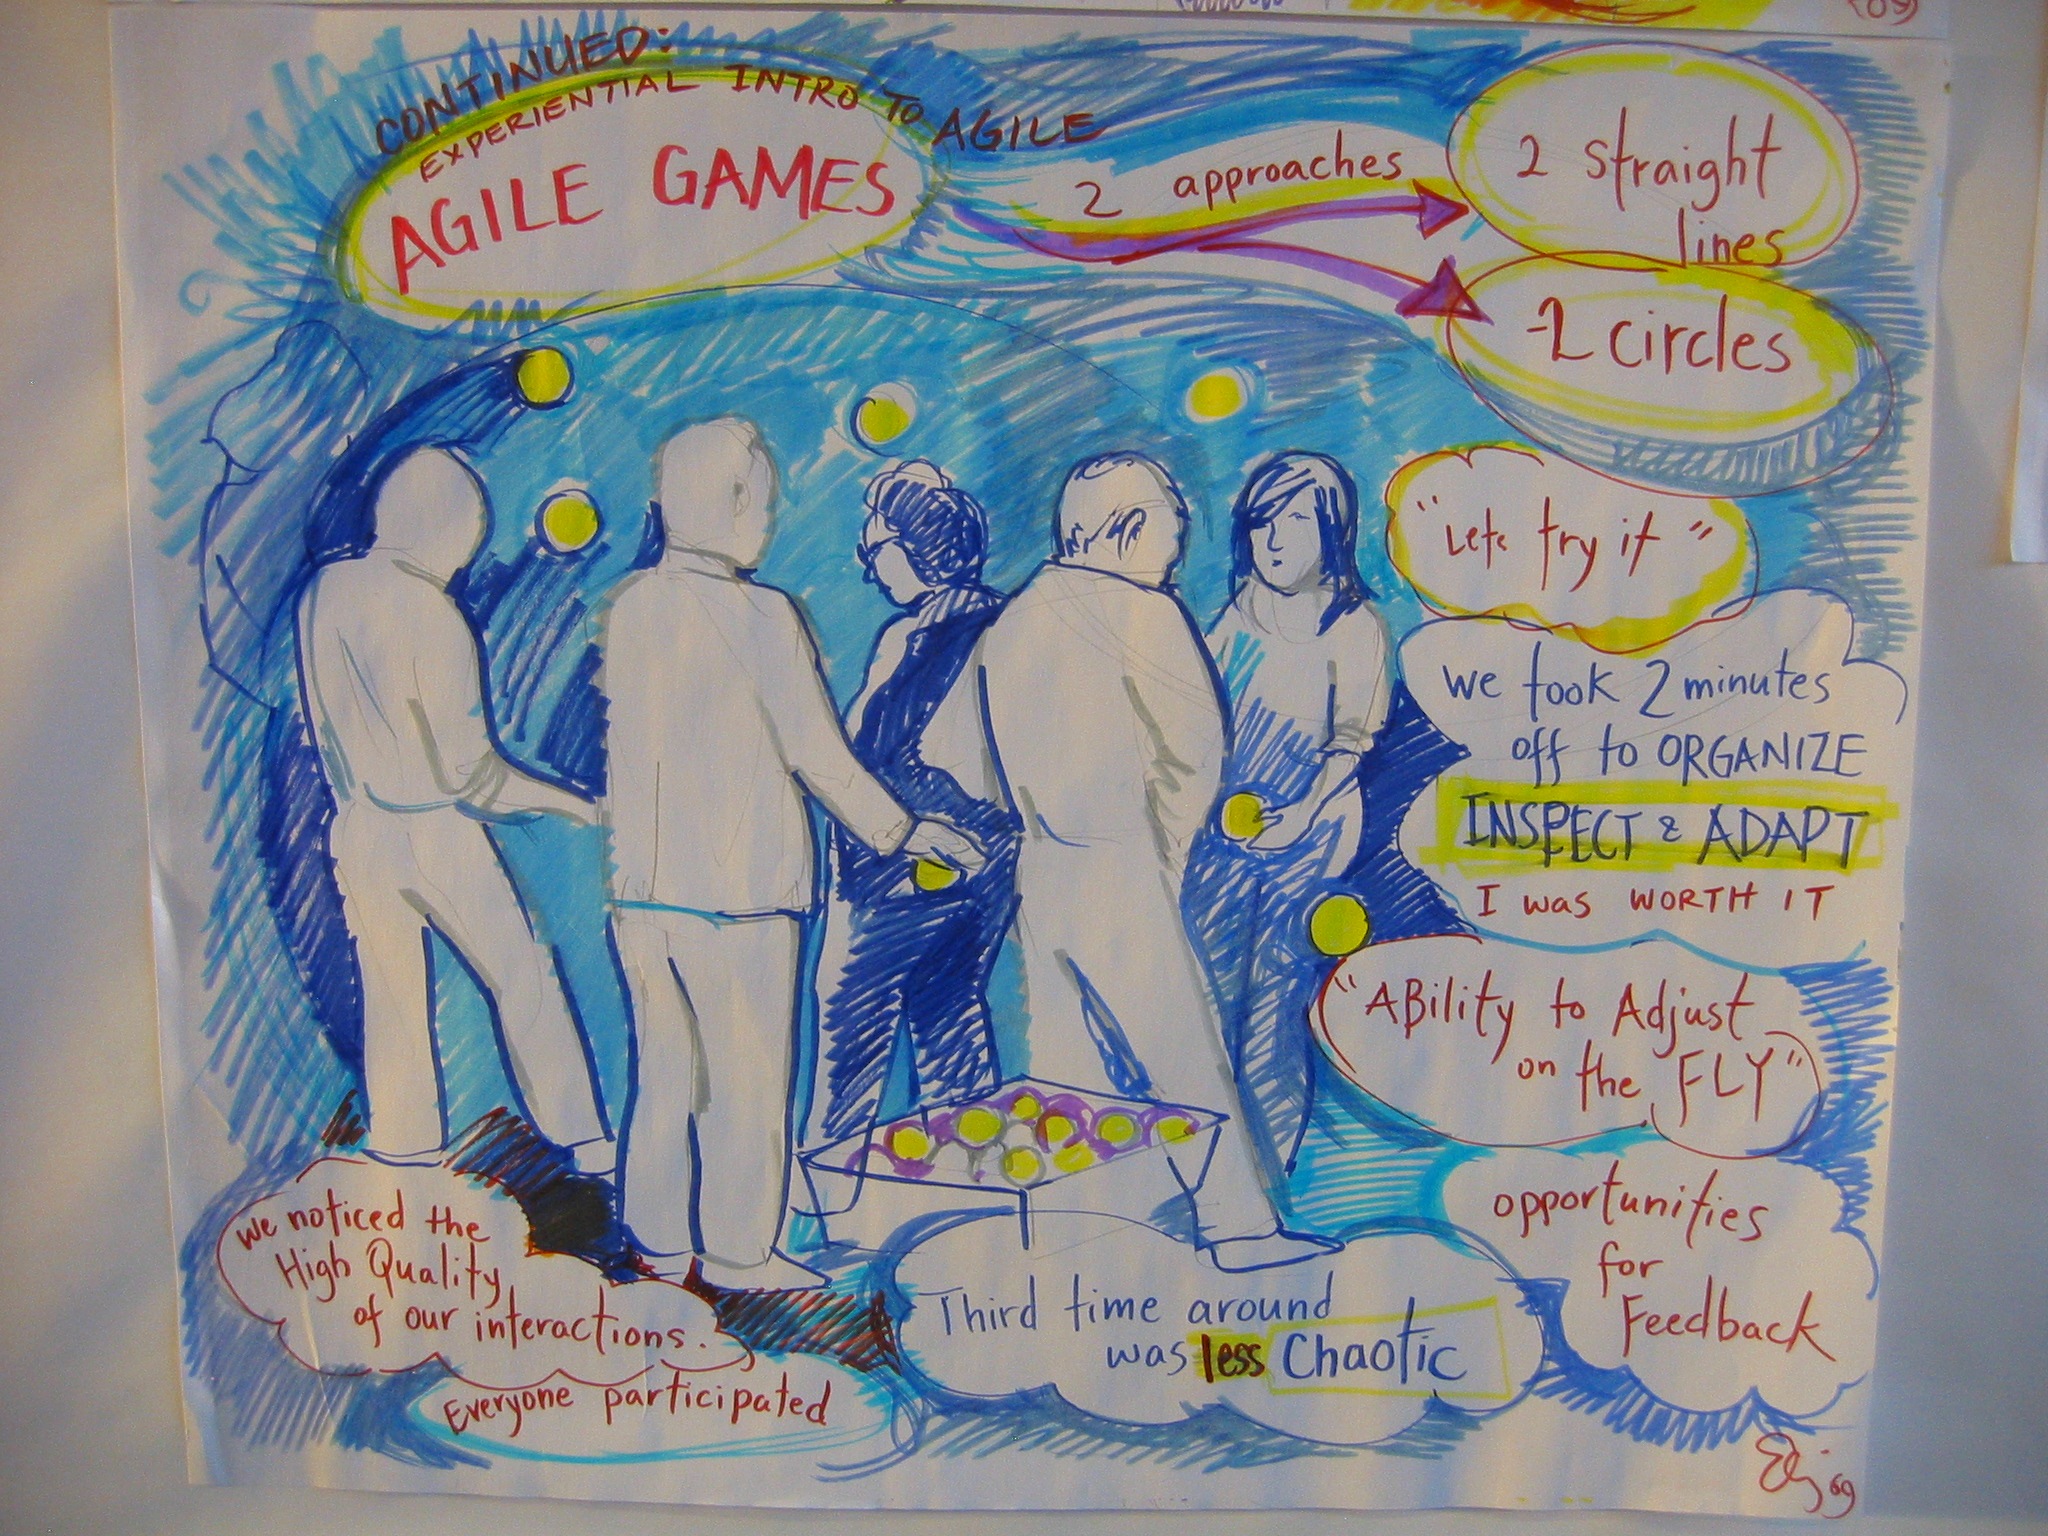 (09)
CONTINUED:
EXPERIENTIAL INTRO TO AGILE
AGILE GAMES
2 approaches
2 straight
lines
-2 circles
"Lets try it"
we took 2 minutes
off to ORGANIZE
INSPECT & ADAPT
I was WORTH IT
"ABility to Adjust
on the FLY"
opportunities
for
Feedback
we noticed the
High Quality
of our interactions.
Everyone participated
Third time around
was less Chaotic
09